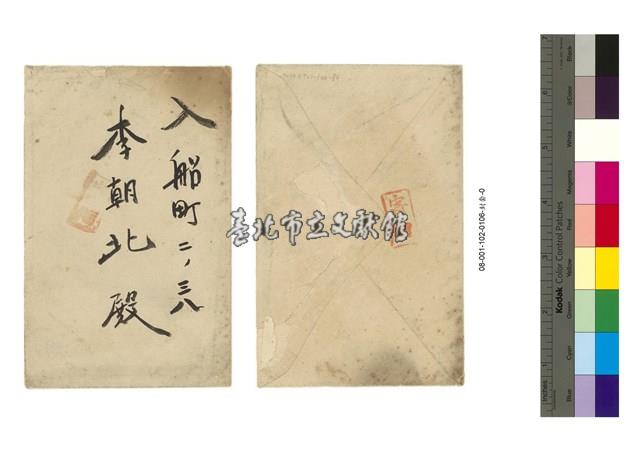 入船町二ノ三八
李朝北殿
臺北市立文獻館
08-001-102-0106-封套-0
Kodak Color Control Patches
Black
3/Color
White
Magenta
Red
Yellow
Green
Cyan
Blue
Inches
1
2
3
4
5
6
7